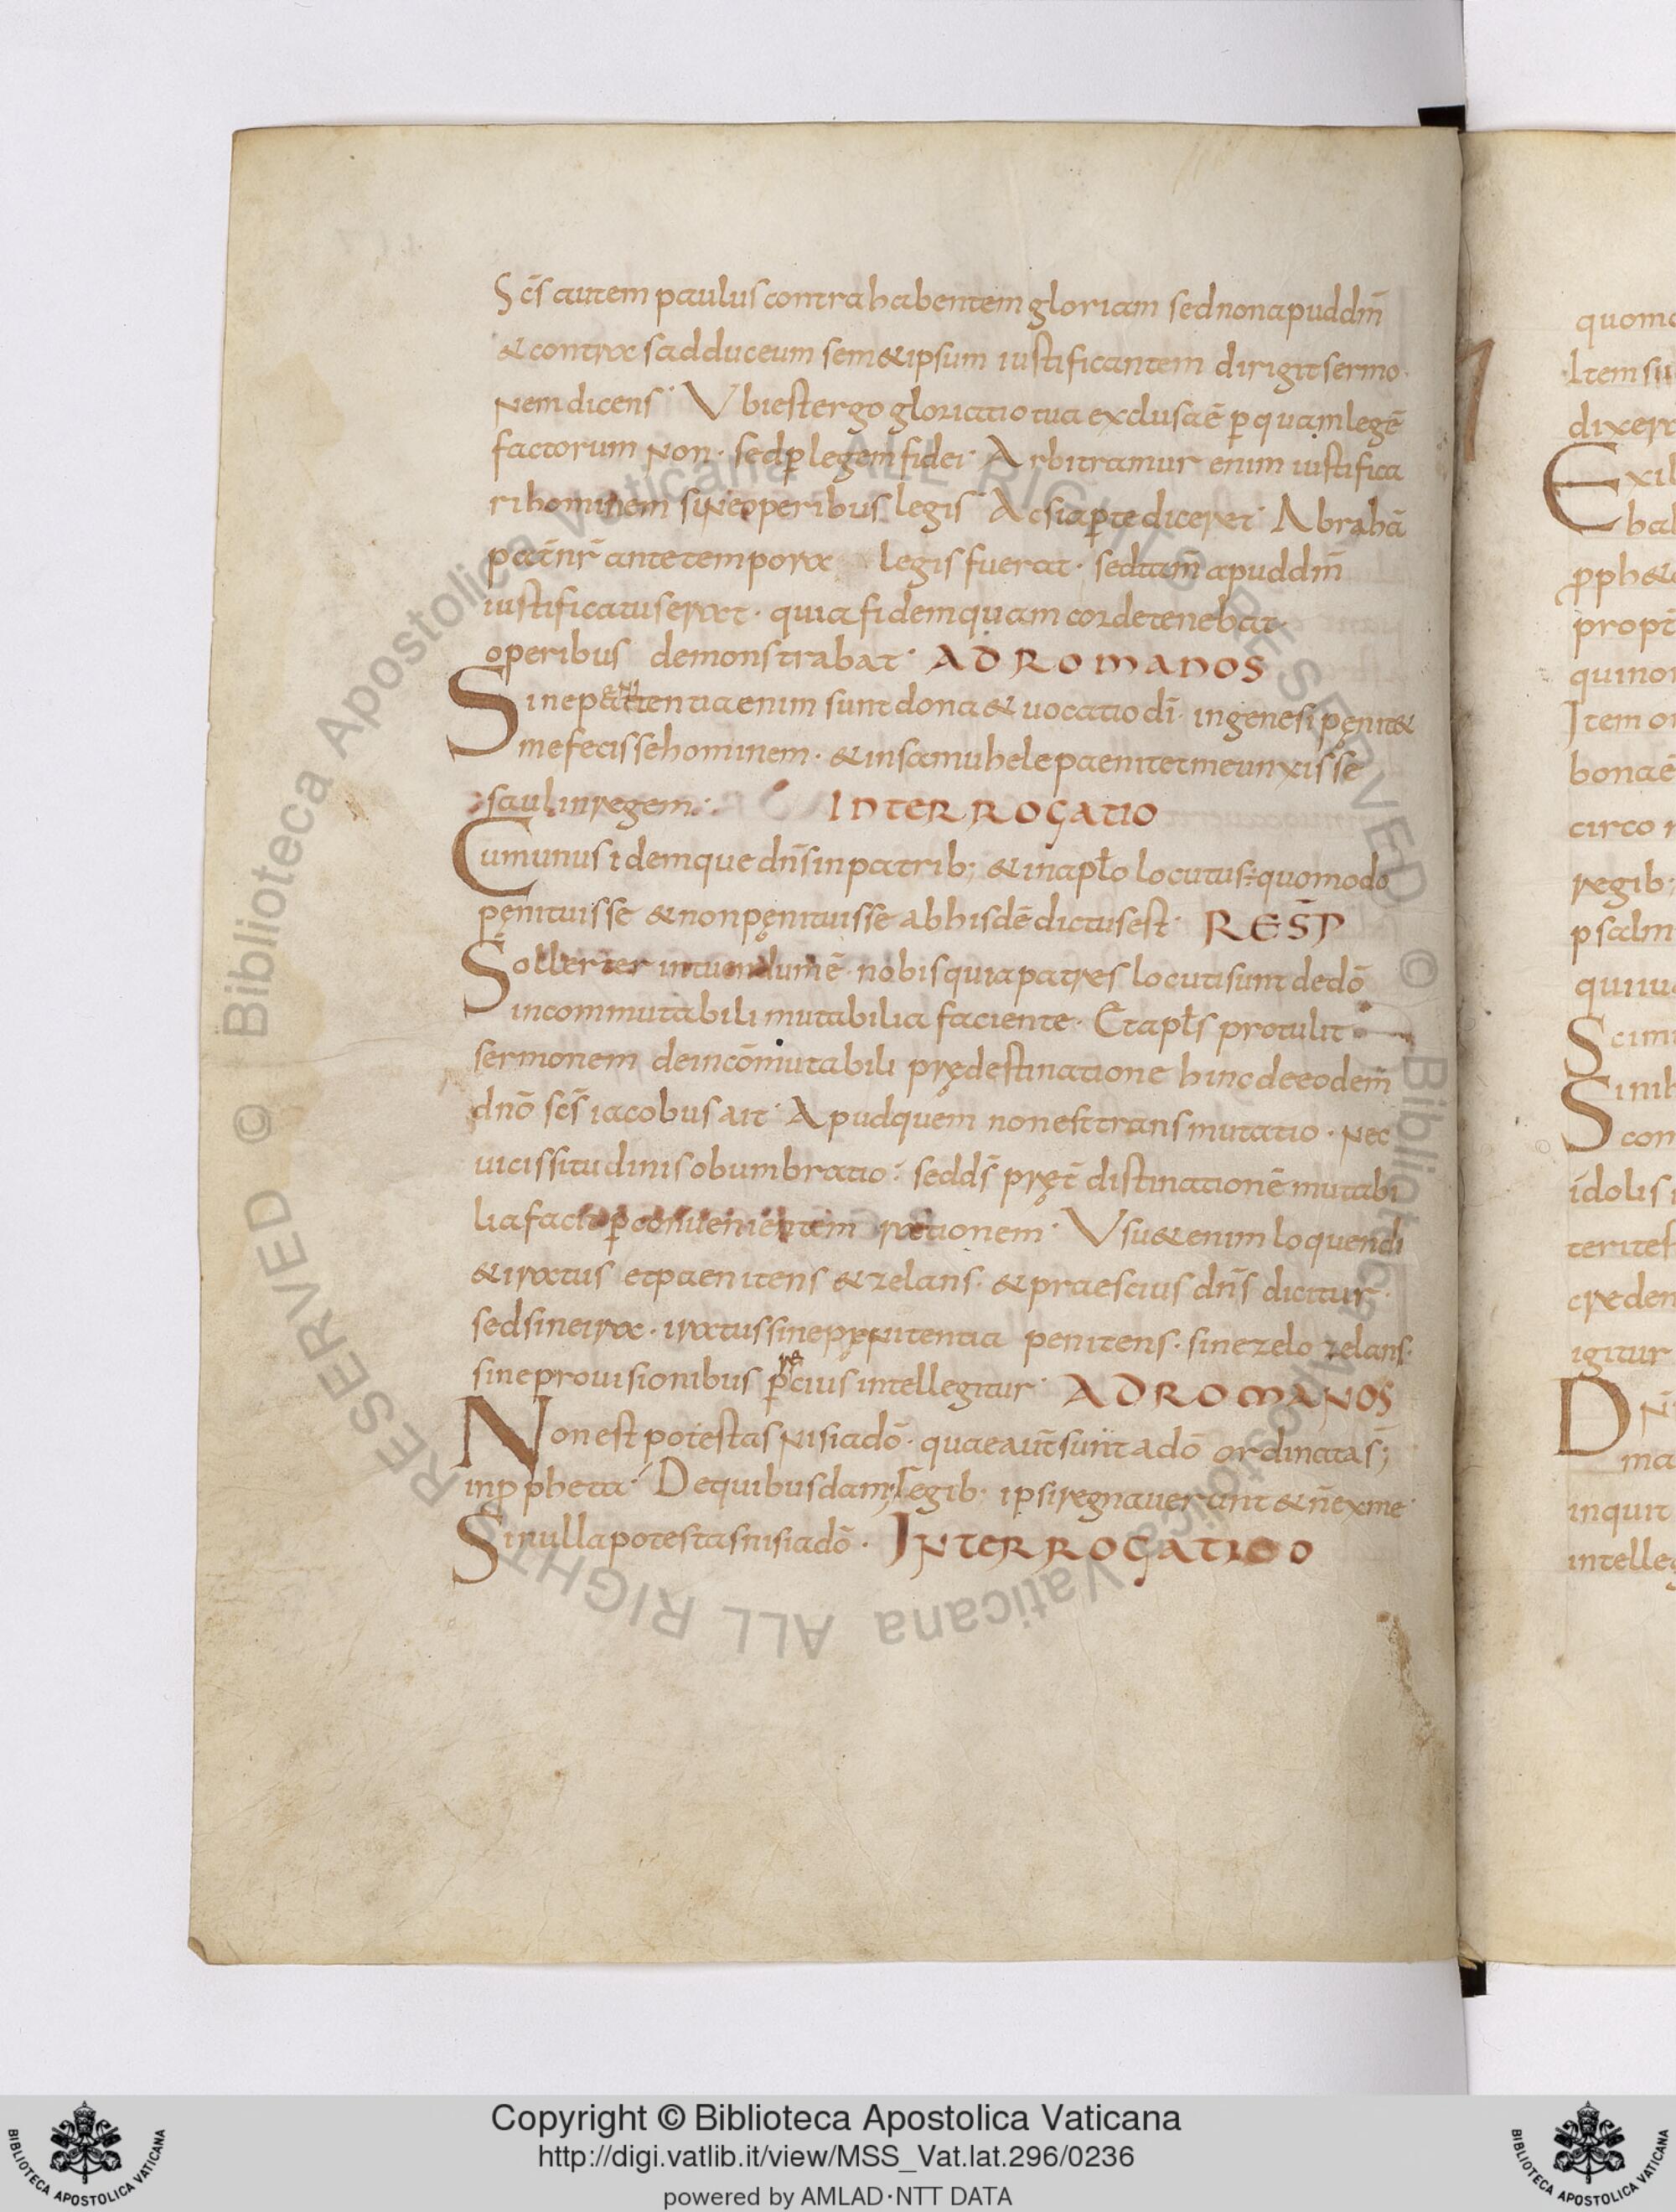 Scs̄ autem paulus contra habentem gloriam sed non apud dm̄
& contra sadduceum sem&ipsum iustificantem dirigit sermo
nem dicens · Vbi est ergo gloriatio tua exclusa ē p̱ quam legē
factorum Non · sed p̱ legem fidei · Arbitramur enim iustifica
ri hominem sine operibus legis · Ac si aperte diceret · Abrahā
pat̄ nr̄ ante tempora legis fuerat · sed tam̄ apud dm̄
iustificatus erat · quia fidem quam corde tenebat
operibus demonstrabat · AD ROMANOS
Sine penitentia enim sunt dona & uocatio dī · in genesi pęnit&
me fecisse hominem · & in samuhele paenitet me unxisse
saul in regem · INTERROGATIO
Cum unus idemque dn̄s in patrib; & in aplo locutus ÷ quomodo
pęnituisse & non pęnituisse ab hisdē dictus est · RESP̄
Sollerter intuendum ē nobis quia patres locuti sunt de dō
incommutabili mutabilia faciente · Et apls protulit
sermonem de incōmutabili prędestinatione hinc de eodem̄
dnō scs̄ iacobus ait · Apud quem non est transmutatio · nec
uicissitudinis obumbratio · sed ds̄ pręt̄ distinationē mutabi
lia facit p̱ conuenientem rationem · Vsu & enim loquendi
& iratus et paenitens & zelans · & praescius dn̄s dicitur ·
sed sine ira · iratus sine penitentia penitens · sine zelo zelans ·
sine prouisionibus prescius intellegitur · AD ROMANOS
Non est potestas nisi a dō · quae aut̄ sunt a dō ordinata s̄;
in ppheta · De quibusdam regib· ipsi regnauerunt & n̄ ex me ·
Si nulla potestas nisi a dō · INTERROGATIO
quomo
Item su
dixer
Exil
bal
pph&
propt
quinon
Item o
bona ē
circo
regib·
psalm
quiiu
Scim
Si nih
con
idolis
terites
creden
igitur
Dn̄
ma
inquit
intelleg
© Biblioteca Apostolica Vaticana ALL RIGHTS RESERVED
Copyright © Biblioteca Apostolica Vaticana
http://digi.vatlib.it/view/MSS_Vat.lat.296/0236
powered by AMLAD·NTT DATA
BIBLIOTECA APOSTOLICA VATICANA
BIBLIOTECA APOSTOLICA VATICANA